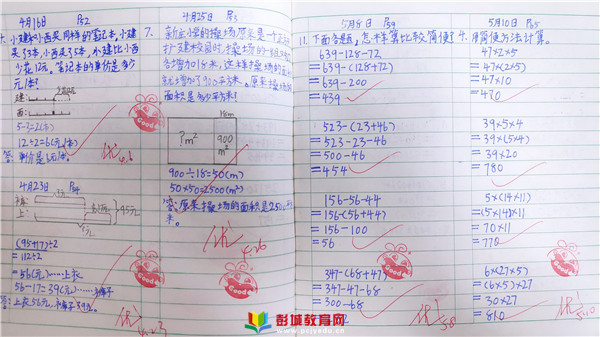 4月16日 P52
4. 小建和小西买同样的笔记本,小建
买了3本,小西买了5本,小建比小西
少花12元。笔记本的单价是多少
元1本?
建:
西:
5-3=2(本)
12÷2=6(元/本)
答:单价是6元/本
优 4.16
4月23日
上:
95元
(95+17)÷2
=112÷2
=56(元)……上衣
56-17=39(元)……
答:上衣56元,
优 4.23
4月25日
7.
扩建校园时,操场的一组对边
各增加18米,这样操场的面积
就增加了900平方米。原来操场的
面积是多少平方米?
18m
?m²
900
m²
900÷18=50(m)
50×50=2500(m²)
答:原来操场的面积是2500平方
米。
优 4.26
Good
5月8日 P59
11. 下面各题,怎样算比较简便?
639-128-72
=639-(128+72)
=639-200
=439
523-(23+46)
=523-23-46
=500-46
=454
156-56-44
=156-(56+44)
=156-100
=56
347-(68+47)
=347-47-68
=300-68
优 5.8
5月10日 P65
4. 用简便方法计算。
47×2×5
=47×(2×5)
=47×10
=470
39×5×4
=39×(5×4)
=39×20
=780
5×(14×11)
=(5×14)×11
=70×11
=770
6×(27×5)
=(6×5)×27
=30×27
=810
优 5.10
Good
彭城教育网
www.pcjyedu.cn